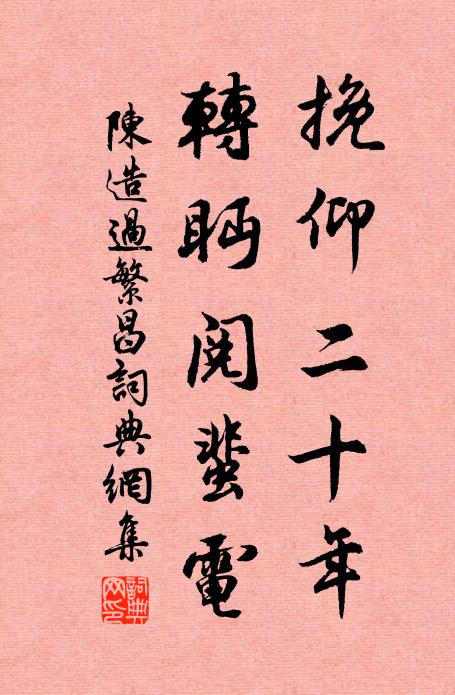 挽仰二十年
轉眄閱蜚電
陳造過繁昌詞典網集
詞典
网印